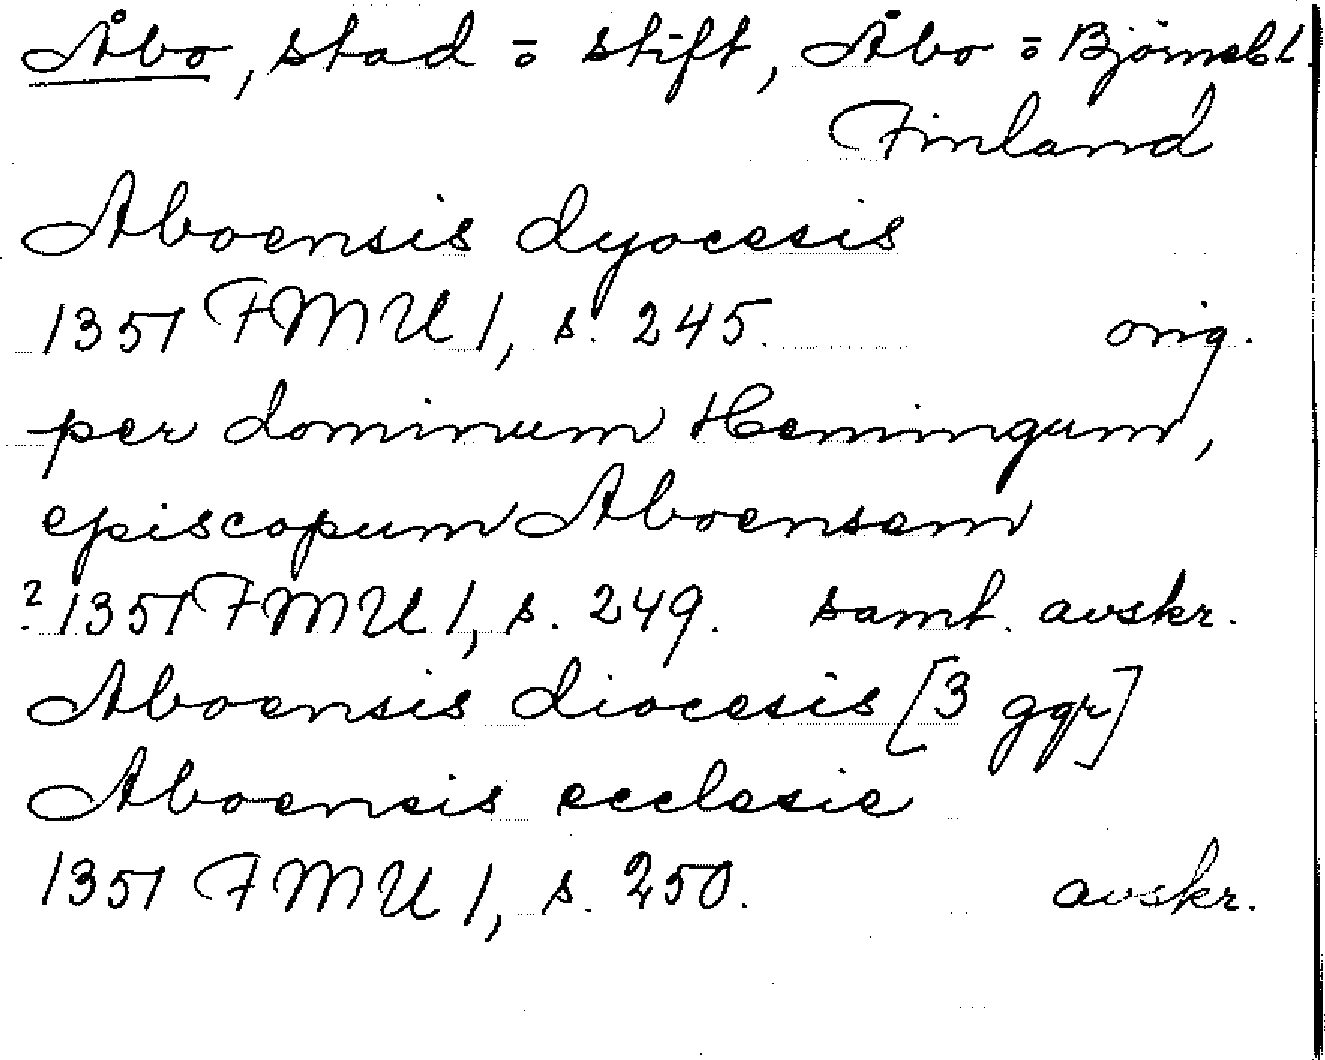 Åbo, stad o stift, Åbo o Björnebl.
Finland
Aboensis dyocesis
1351 FMU 1, s. 245. orig.
per dominum Hemingum,
episcopum Aboensem
? 1351 FMU 1, s. 249. samt. avskr.
Aboensis diocesis [3 ggr]
Aboensis ecclesie
1351 FMU 1, s. 250. avskr.